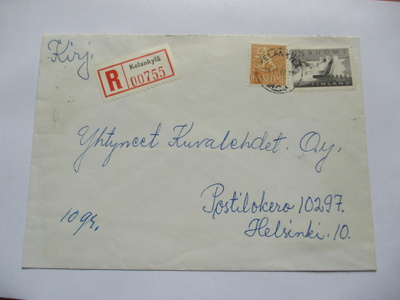 Kirj.
Kelankylä
R 00755
KELANKYLÄ
SUOMI
SUOMI
FINLAND
Yhtyneet Kuvalehdet. Oy.
Postilokero 10297.
Helsinki. 10.
10gr.